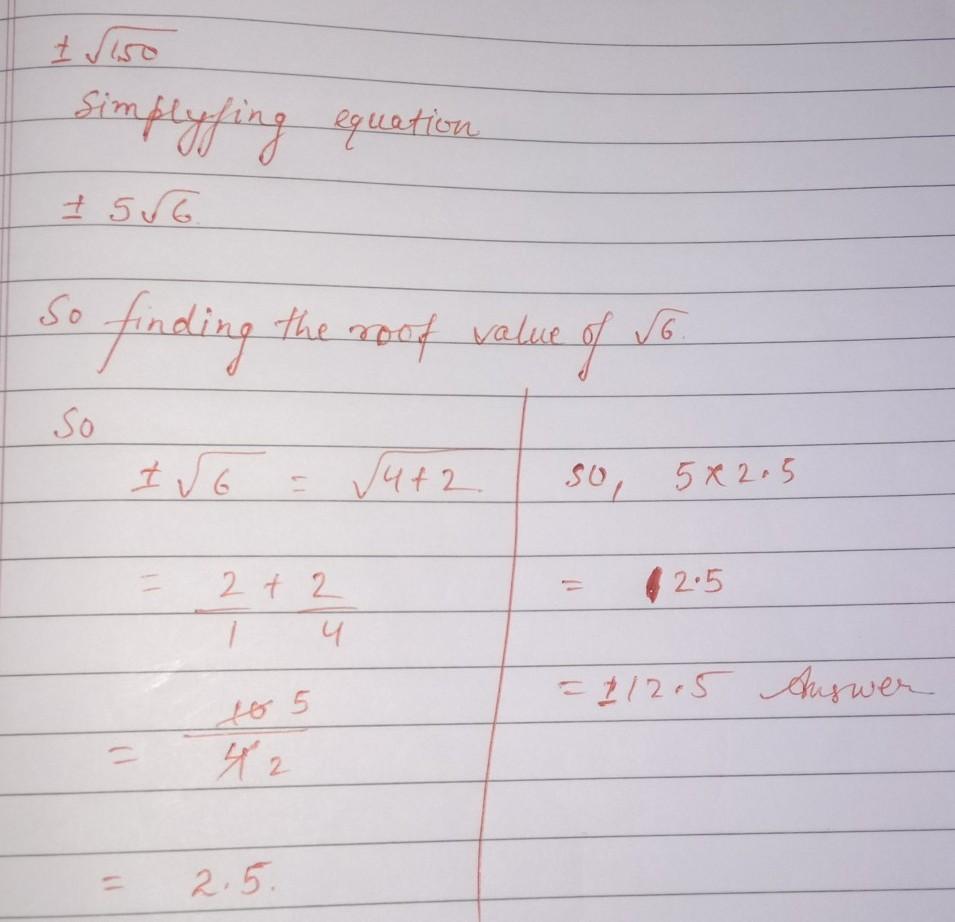 ± √150
Simplyfing equation
± 5√6
So finding the roof value of √6.
So
± √6 = √4+2.
= 2/1 + 2/4
= 10 5/4 2
= 2.5.
so, 5×2.5
= 12.5
= ±12.5 Answer